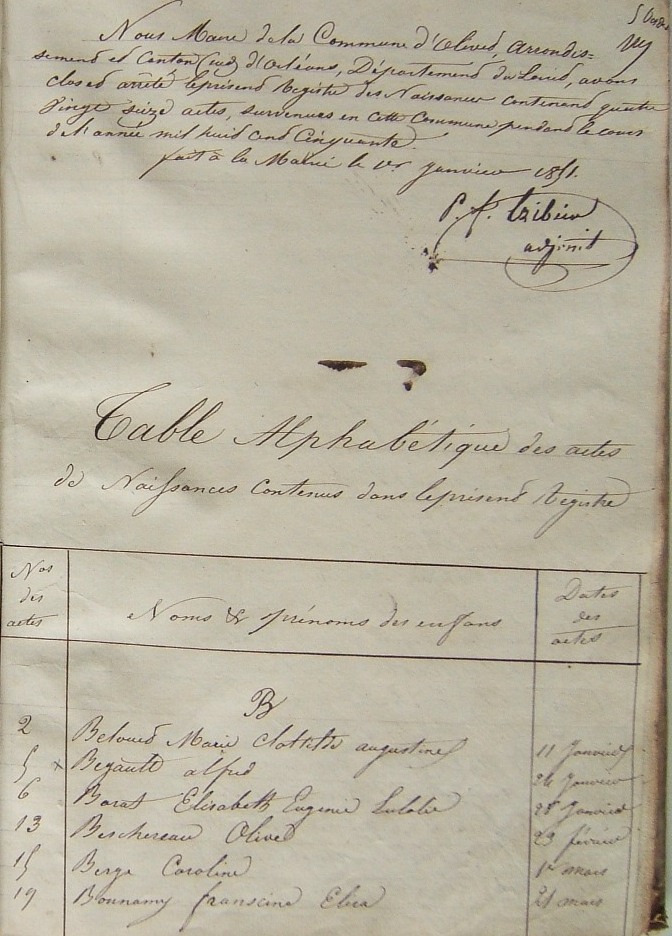 Nous Maire de la Commune d'Olivet, arrondis=
sement et Canton (sud) d'Orléans, Département du Loiret, avons
clos et arrêté le présent Registre des Naissances contenant quatre
vingt seize actes, survenues en cette Commune pendant le cours
de l'année mil huit cent Cinquante.
fait à la Mairie le 1er Janvier 1851.
adjoint
Table Alphabétique des actes
de Naissances Contenus dans le présent Registre
Nos des actes
Noms & prénoms des enfans
Dates des actes
B
2 Marie Clottilde augustine 11 Janvier
5 x Begault alfred 24 Janvier
6 Borat Elisabeth Eugenie Eulalie 28 Janvier
13 Beschereau Olivet 23 février
15 Berge Caroline 1er mars
19 Bonnamy franscine Eliza 21 mars